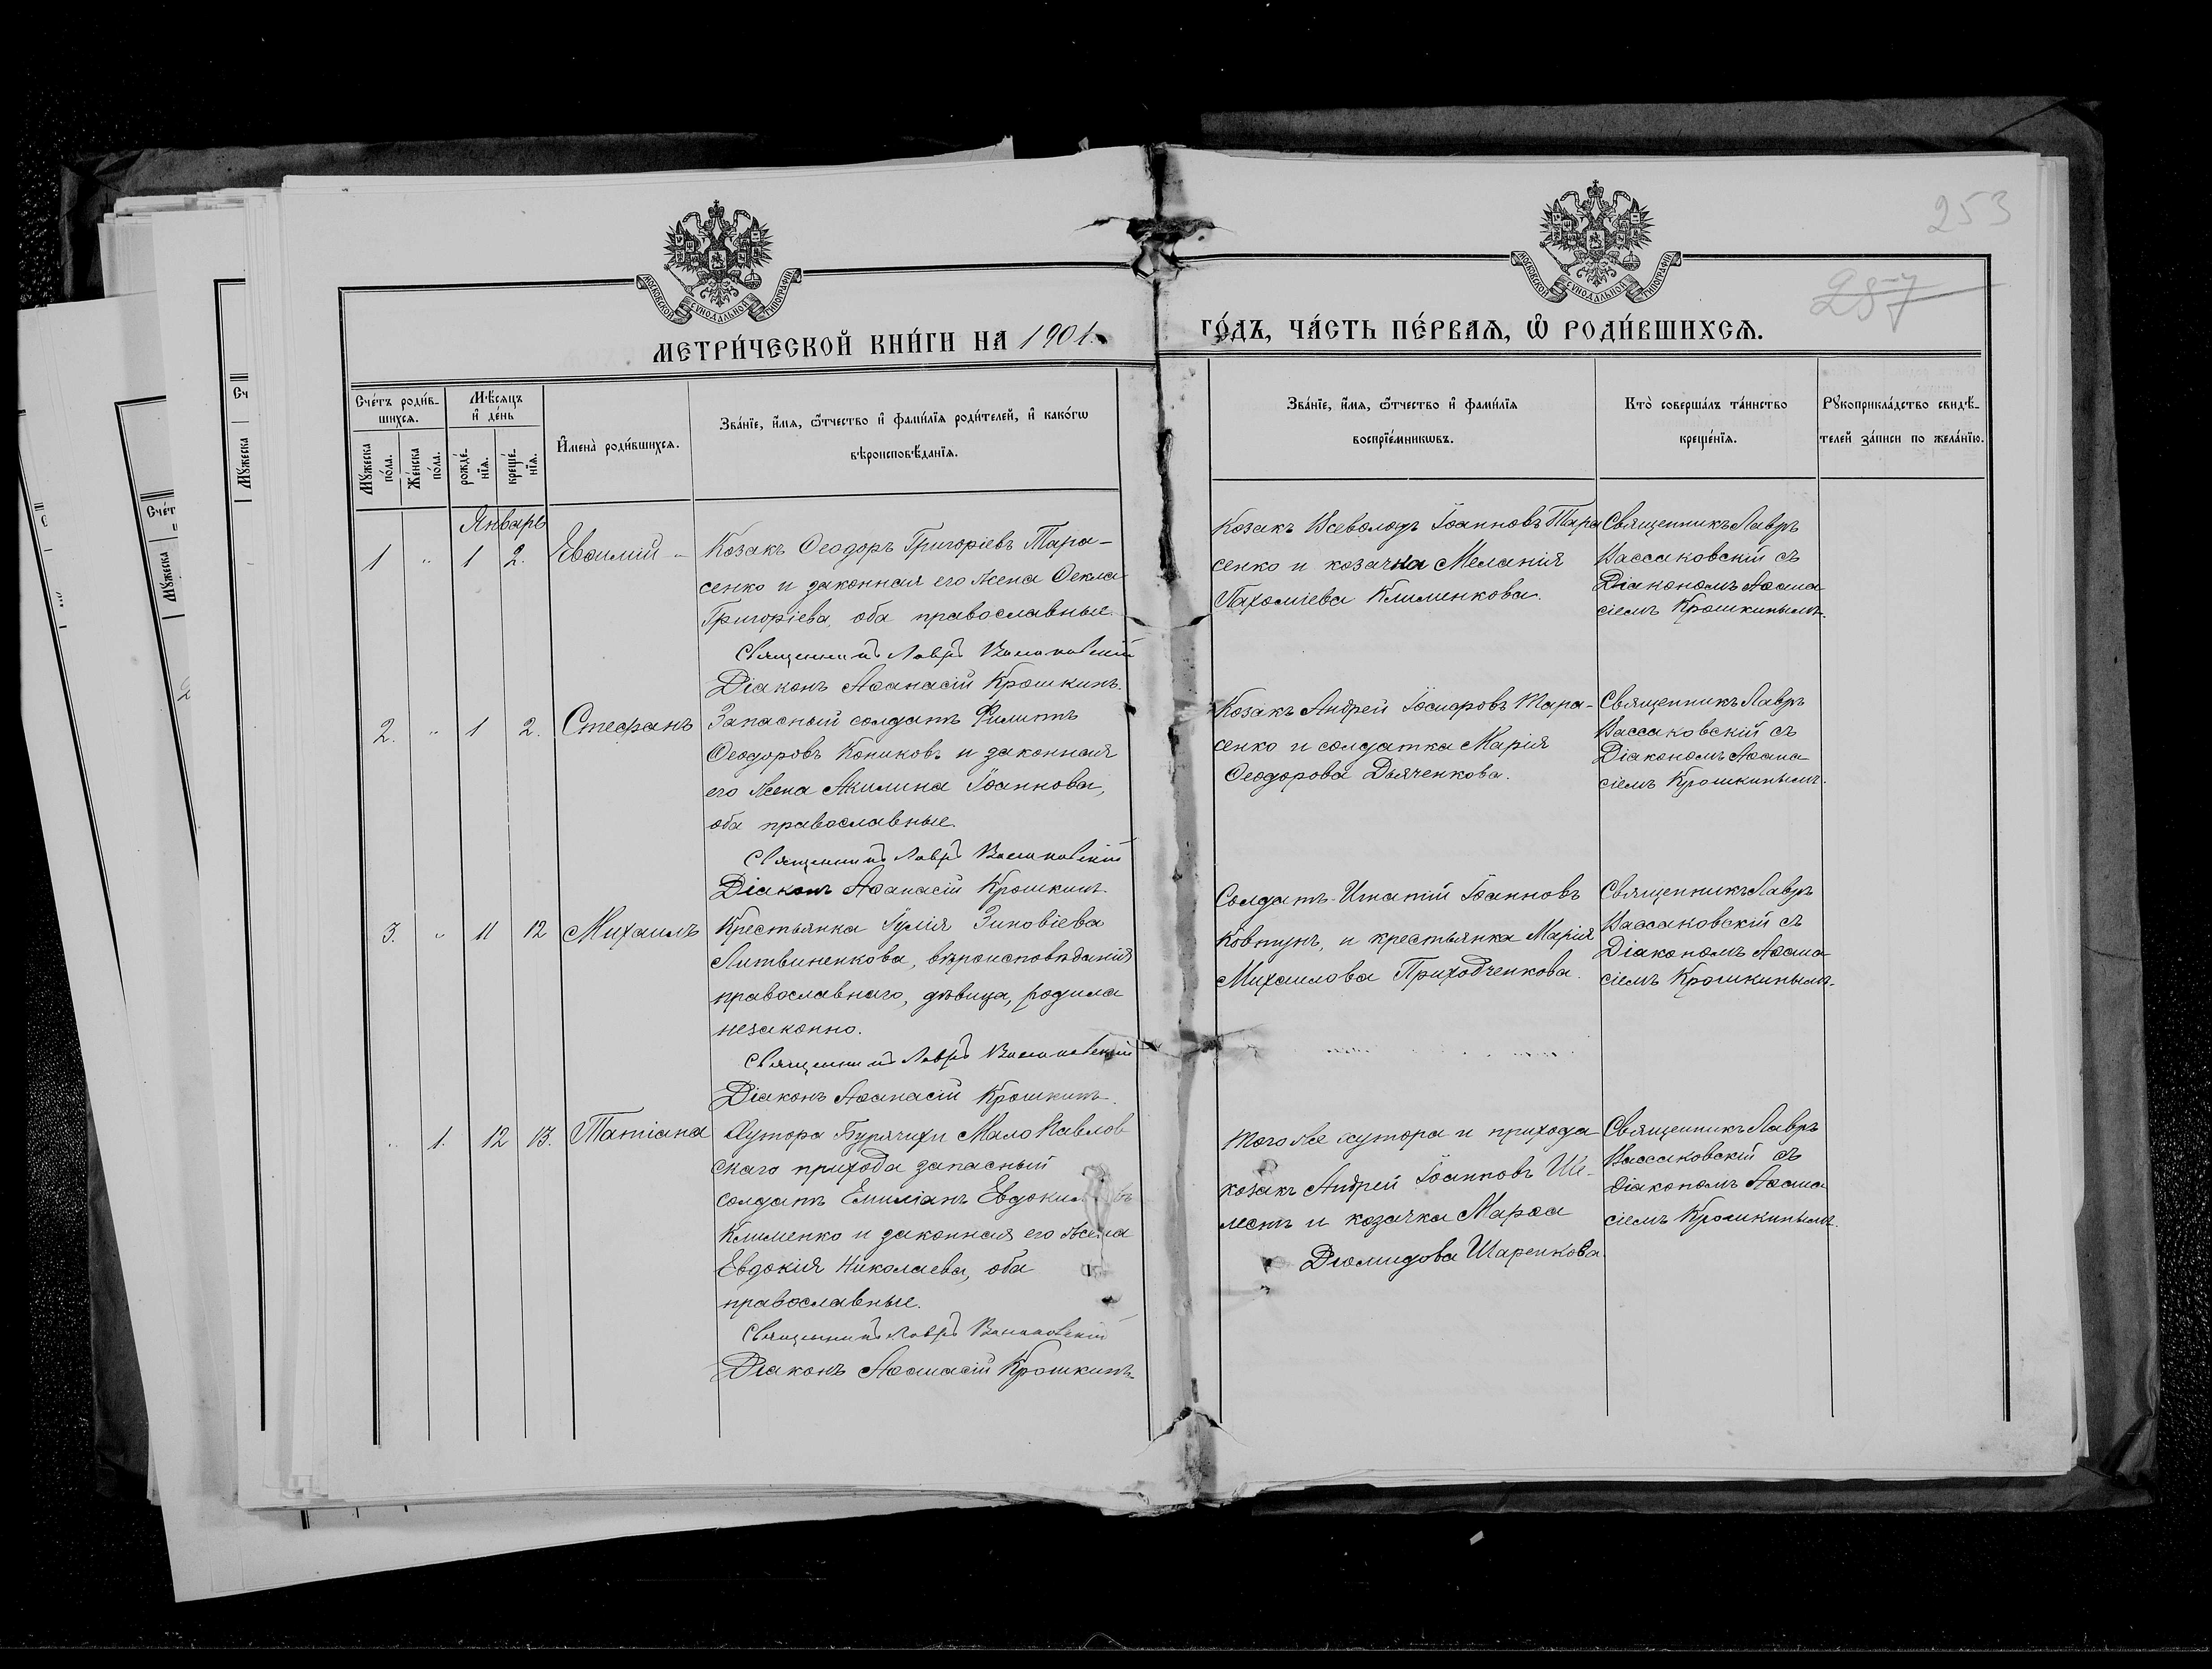 253
257
МОСКОВСКОЙ СУНОДАЛЬНОЙ ТИПОГРАФІИ
МОСКОВСКОЙ СУНОДАЛЬНОЙ ТИПОГРАФІИ
МЕТРИ́ЧЕСКОЙ КНИ́ГИ НА 1901.
ГО́ДЪ, ЧА́СТЬ ПЕ́РВАѦ, Ѡ҆ РОДИ́ВШИХСѦ.
Сче́тъ роди́в-
шихсѧ.
Мꙋ́жеска
по́ла.
Же́нска
по́ла.
Мѣ́сѧцъ
и҆ де́нь
рожде́-
нїѧ.
креще́-
нїѧ.
И҆мена̀ роди́вшихсѧ.
Зва́нїе, и҆́мѧ, ѻ҆́тчество и҆ фами́лїѧ роди́телей, и҆ како́гѡ
вѣроисповѣ́данїѧ.
Зва́нїе, и҆́мѧ, ѻ҆́тчество и҆ фами́лїѧ
воспрїе́мникѡвъ.
Кто̀ соверша́лъ та́инство
креще́нїѧ.
Рꙋкоприкла́дство свидѣ́-
телей за́писи по жела́нїю.
Январь
1 " 1 2. Евѳимій "
Козакъ Ѳеодоръ Григоріевъ Тара-
сенко и законная его жена Ѳекла
Григоріева, оба православные.
Священникъ Лавръ Вассаковскій
Діаконъ Аѳанасій Крошкинъ.
Козакъ Всеволодъ Іоанновъ Тара
сенко и козачка Меланія
Пахоміева Клименкова.
Священникъ Лавръ
Вассаковскій съ
Діакономъ Аѳана
сіемъ Крошкинымъ.
2. " 1 2. Стефанъ
Запасный солдатъ Филиппъ
Ѳеодоровъ Кониковъ и законная
его жена Акилина Іоаннова,
оба православные.
Священникъ Лавръ Вассаковскій
Діаконъ Аѳанасій Крошкинъ.
Козакъ Андрей Іосифовъ Тара-
сенко и солдатка Марія
Ѳеодорова Дьяченкова.
Священникъ Лавръ
Вассаковскій съ
Діакономъ Аѳана
сіемъ Крошкинымъ.
3. " 11 12 Михаилъ
Крестьянка Іулія Зиновіева
Литвиненкова, вѣроисповѣданія
православнаго, дѣвица, родила
незаконно.
Священникъ Лавръ Вассаковскій
Діаконъ Аѳанасій Крошкинъ.
Солдатъ Игнатій Іоанновъ
Ковтунъ, и крестьянка Марія
Михаилова Приходченкова.
Священникъ Лавръ
Вассаковскій съ
Діакономъ Аѳана
сіемъ Крошкинымъ.
" 1. 12 13. Татіана
Хутора Бурячихи Мало Павлов
скаго прихода запасный
солдатъ Емиліанъ
Клименко и законная его жена
Евдокія Николаева, оба
православные.
Священникъ Лавръ Вассаковскій
Діаконъ Аѳанасій Крошкинъ.
Того же хутора и прихода
козакъ Андрей Іоанновъ Ше-
лестъ и козачка Марѳа
Діомидова Шаренкова.
Священникъ Лавръ
Вассаковскій съ
Діакономъ Аѳана
сіемъ Крошкинымъ.